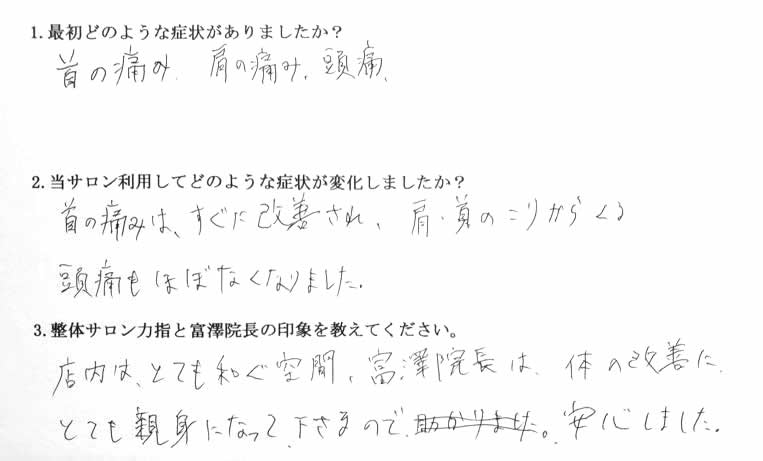 1.最初どのような症状がありましたか？
首の痛み、肩の痛み、頭痛、
2.当サロン利用してどのような症状が変化しましたか？
首の痛みは、すぐに改善され、肩・首のこりからくる
頭痛もほぼなくなりました。
3.整体サロン力指と富澤院長の印象を教えてください。
店内は、とても和ぐ空間、富澤院長は、体の改善に、
とても親身になって下さるので、助かりました。安心しました。